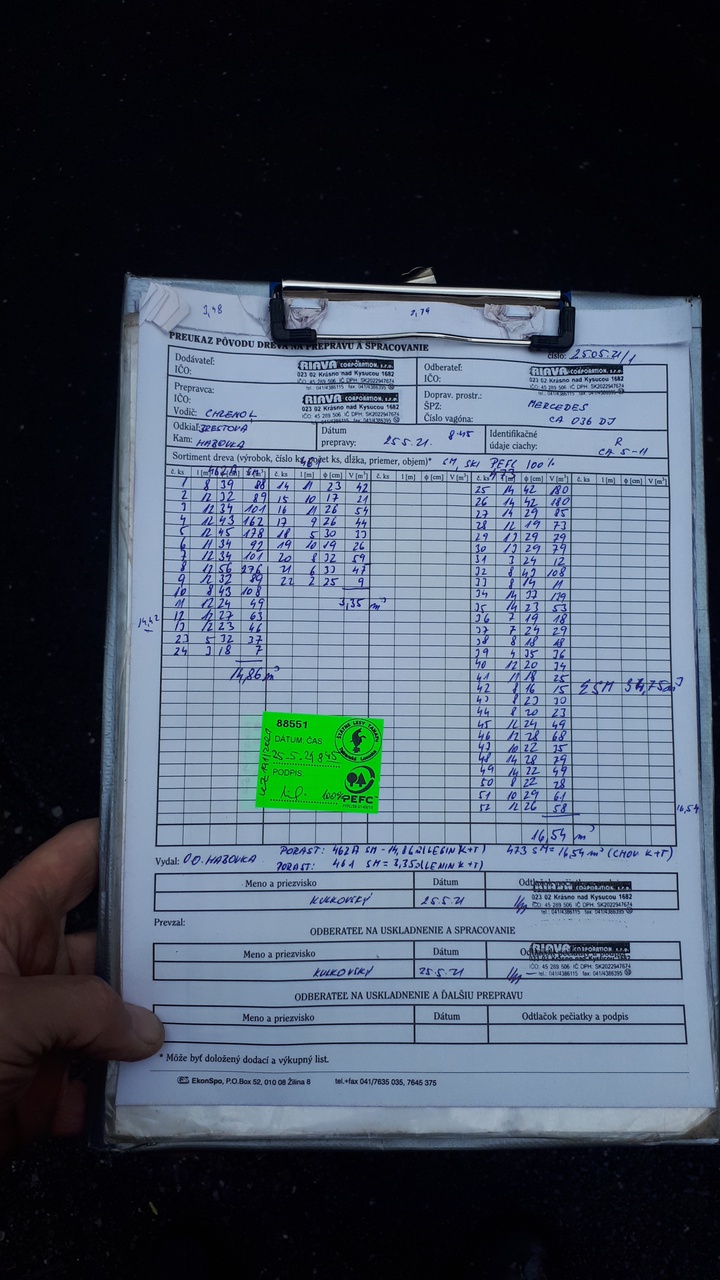 3,48 3,79
PREUKAZ PÔVODU DREVA NA PREPRAVU A SPRACOVANIE
číslo: 25.05.21/1
Dodávateľ:
IČO:
RIAVA CORPORATION, s.r.o.
023 02 Krásno nad Kysucou 1682
IČO: 45 289 506 IČ DPH: SK2022947674
Odberateľ:
IČO:
RIAVA CORPORATION, s.r.o.
023 02 Krásno nad Kysucou 1682
IČO: 45 289 506 IČ DPH: SK2022947674
tel.: 041/4386115 fax: 041/4386395
Prepravca:
IČO:
Vodič:
RIAVA CORPORATION, s.r.o.
023 02 Krásno nad Kysucou 1682
IČO: 45 289 506 IČ DPH: SK2022947674
Doprav. prostr.: MERCEDES
ŠPZ:
Číslo vagóna: CA 036 DJ
Odkiaľ:
Kam: HABOVKA
Dátum
prepravy: 25.5.21. 8:45
Identifikačné
údaje ciachy: R
CA 5-11
Sortiment dreva (výrobok, číslo ks, počet ks, dĺžka, priemer, objem)* SM, SKI PEFC 100%
č. ks l [m] ϕ [cm] V [m³] č. ks l [m] ϕ [cm] V [m³] č. ks l [m] ϕ [cm] V [m³]
1 8 39 88 14 11 23 42 25 14 42 180
2 12 32 89 15 10 17 21 26 14 42 180
3 12 34 101 16 11 26 54 27 14 29 85
4 12 43 162 17 9 26 44 28 12 19 73
5 12 45 178 18 5 30 33 29 13 29 79
6 11 34 92 19 10 19 26 30 13 29 79
7 12 34 101 20 8 32 59 31 3 24 12
8 12 56 276 21 6 33 47 32 8 43 108
9 12 32 89 22 2 25 9 33 8 14 11
10 8 43 108 34 14 37 139
11 12 24 49 3,35 m³ 35 14 23 53
14,42 12 12 27 63 36 7 19 18
13 12 23 46 37 7 24 29
23 5 32 37 38 8 18 18
24 3 18 7 39 4 35 36
14,86 m³ 40 12 20 34
41 11 18 25
42 8 16 15 ΣSM 34,75 m³
43 8 23 30
44 8 20 23
45 12 24 49
46 12 28 68
47 10 22 35
48 14 28 79
49 14 22 49
50 8 22 28
51 10 29 61
52 12 26 58 16,54
16,54 m³
88551
ŠTÁTNE LESY TANAPU
DÁTUM: ČAS
25.5.21 8:45
PODPIS:
100%
PEFC
PORAST: 462A SM - 14,86 473 SM = 16,54 m³ (CHOV K+T)
PORAST: 461 SM = 3,35
Vydal: O.O. HABOVKA
Meno a priezvisko Dátum
KULKOVSKÝ 25.5.21
023 02 Krásno nad Kysucou 1682
IČO: 45 289 506 IČ DPH: SK2022947674
tel.: 041/4386115 fax: 041/4386395
Prevzal:
ODBERATEĽ NA USKLADNENIE A SPRACOVANIE
Meno a priezvisko Dátum
RIAVA CORPORATION, s.r.o.
KULKOVSKÝ 25.5.21
IČO: 45 289 506 IČ DPH: SK2022947674
tel.: 041/4386115 fax: 041/4386395
ODBERATEĽ NA USKLADNENIE A ĎALŠIU PREPRAVU
Meno a priezvisko Dátum Odtlačok pečiatky a podpis
* Môže byť doložený dodací a výkupný list.
EkonSpo, P.O.Box 52, 010 08 Žilina 8 tel.+fax 041/7635 035, 7645 375